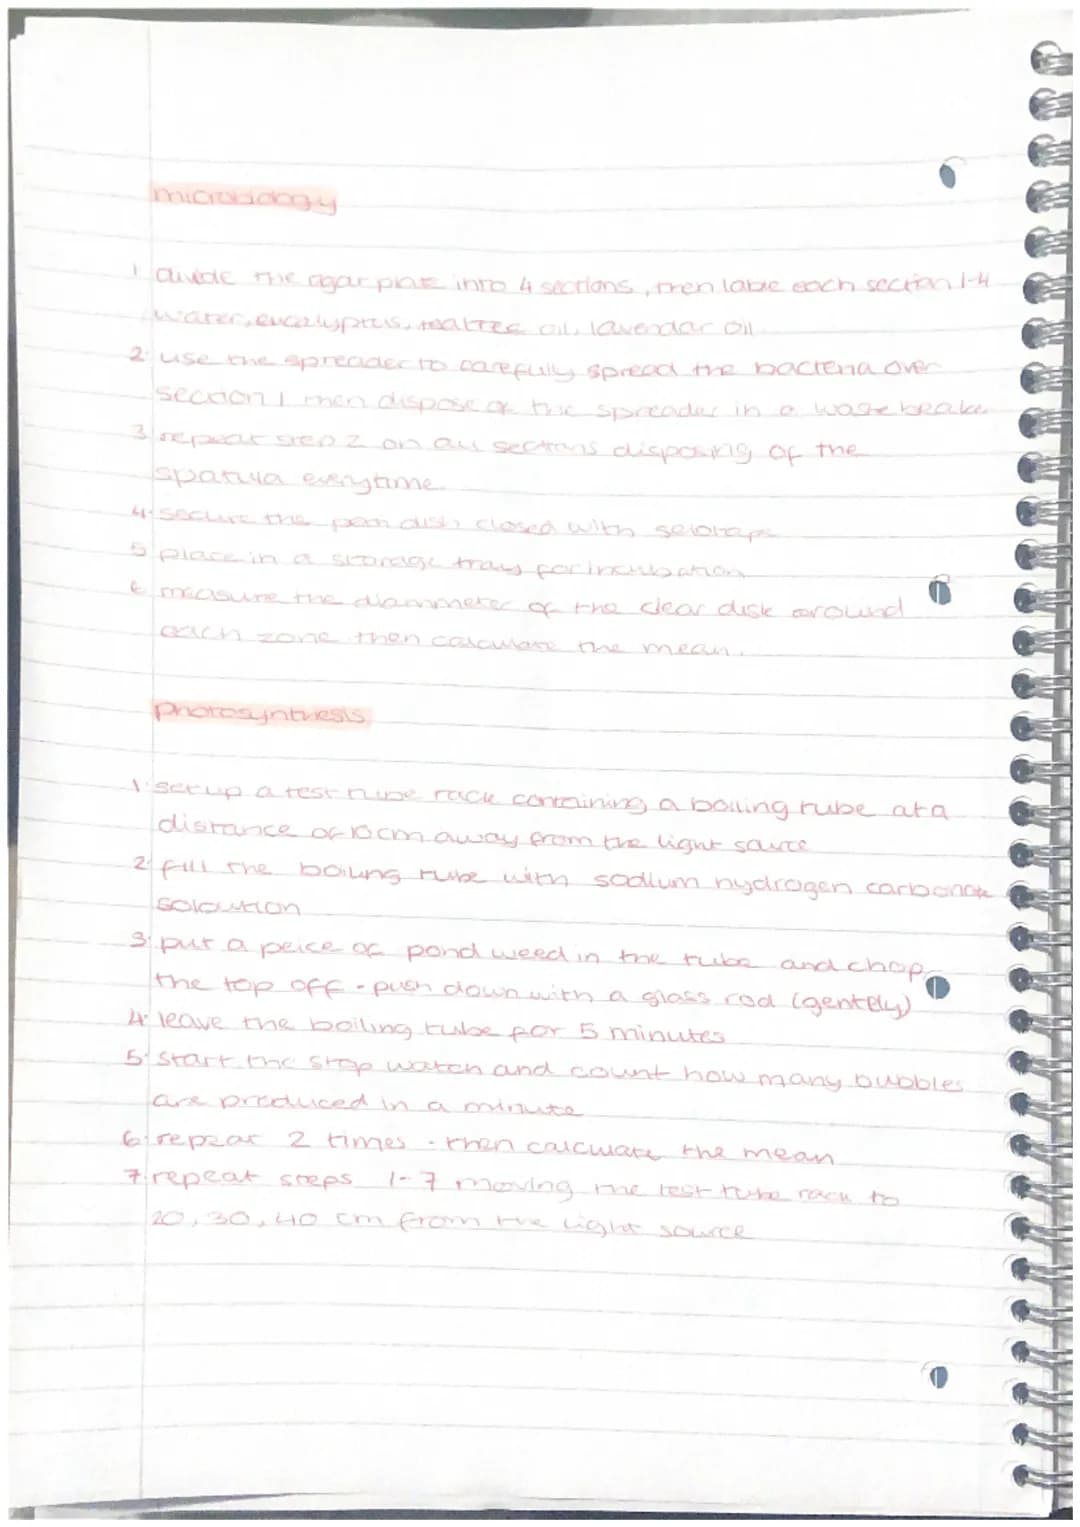 microbiology
1 divide the agar plate into 4 sections, then lable each section 1-4
water, eucalyptus, teatree oil, lavendar oil
2 use the spreader to carefully spread the bacteria over
section 1 then dispose of the spreader in a wase beake
3 repeat step 2 on all sections disposing of the
spatula everytime
4 secure the petri dish closed with selotape
5 place in a storage tray for incubation
6 measure the diammeter of the clear disk around
each zone then calculate the mean.
photosynthesis
1 set up a test tube rack containing a boiling tube at a
distance of 10cm away from the light source
2 fill the boiling tube with sodium hydrogen carbonate
soloution
3 put a peice of pond weed in the tube and chop
the top off - push down with a glass rod (gentely)
4 leave the boiling tube for 5 minutes
5 start the stop watch and count how many bubbles
are produced in a minute
6 repeat 2 times - then calculate the mean
7 repeat steps 1-7 moving the test tube rack to
20, 30, 40 cm from the light source